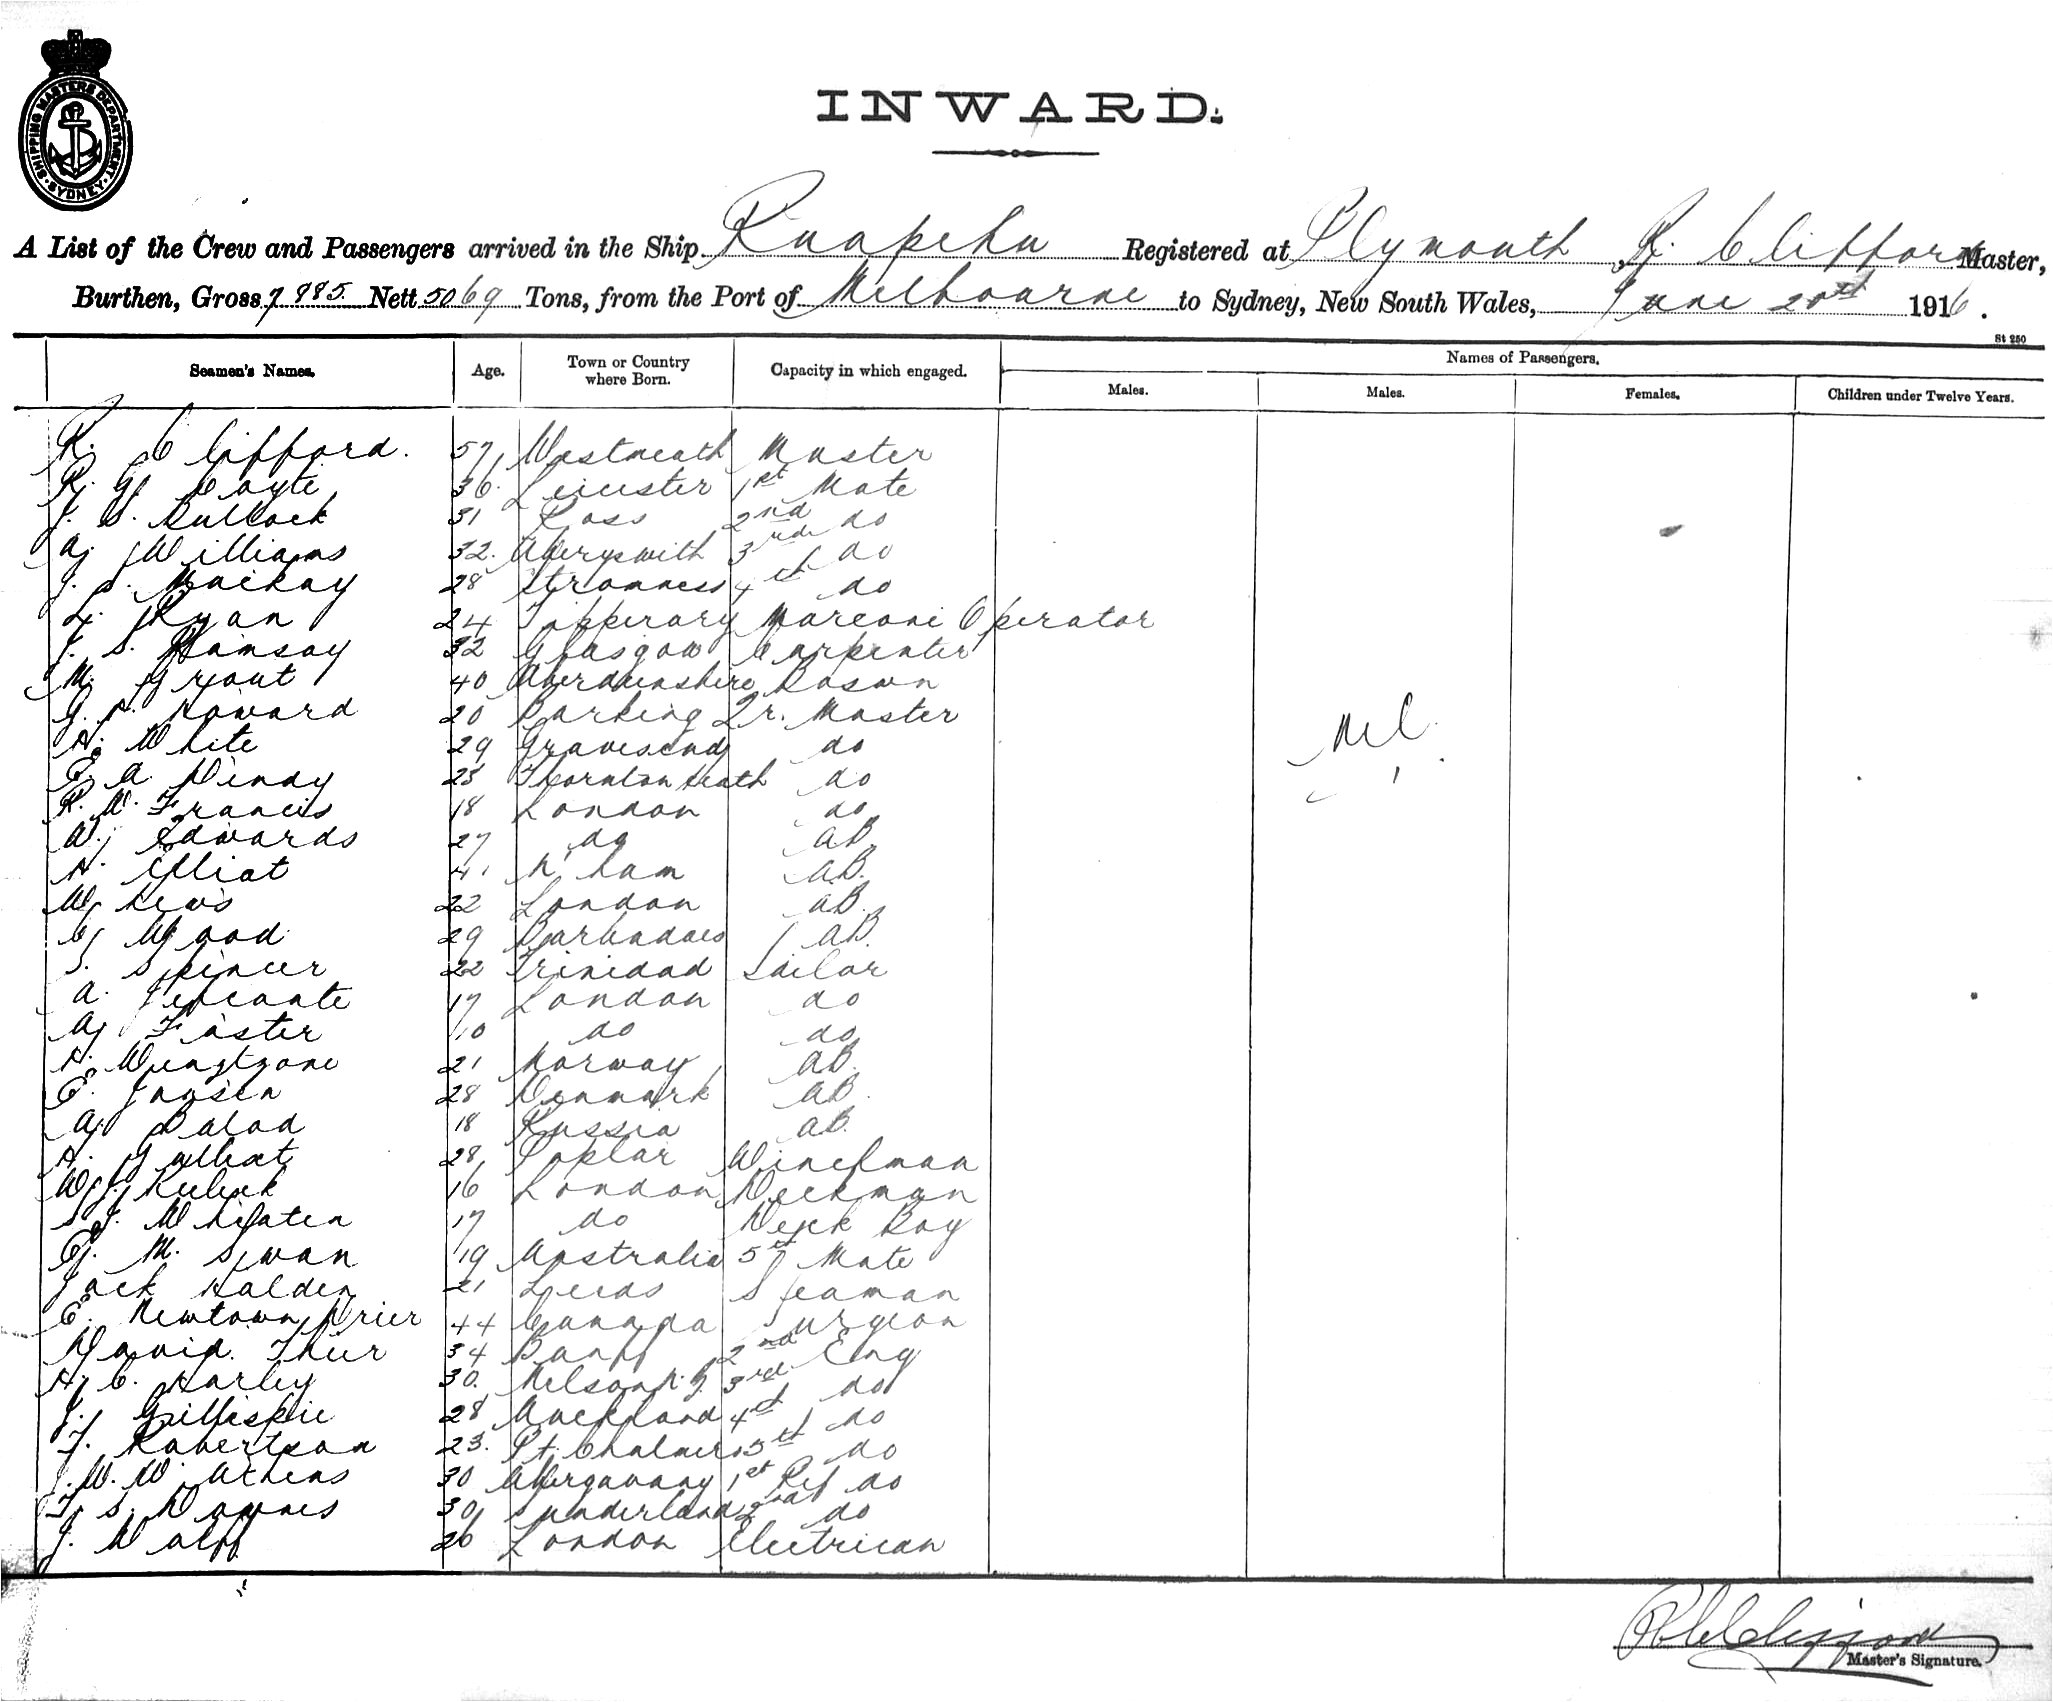 SHIPPING MASTERS DEPARTMENT SYDNEY
INWARD.
A List of the Crew and Passengers arrived in the Ship Ruapehu Registered at Plymouth R. Clifford Master,
Burthen, Gross 7885 Nett 5069 Tons, from the Port of Melbourne to Sydney, New South Wales, June 20th 1916.
St 250
Seamen's Names. Age. Town or Country where Born. Capacity in which engaged. Names of Passengers.
Males. Males. Females. Children under Twelve Years.
R. Clifford. 57 Westmeath Master
R. G. 36 Leicester 1st Mate
J. S. Bullock 31 Ross 2nd do
A. Williams 32 Aberyswith 3rd do
J. Mackay 28 Stromness 4th do
Ryan 24 Tipperary Marconi Operator
J. S. Ramsay 32 Glasgow Carpenter
M. Grout 40 Aberdeenshire Boswn
G. Howard 20 Barking Qr. Master
H. White 29 Gravesend do
E. A. Dendy 23 Thornton Heath do
R. W. Francis 18 London do
W. Edwards 27 do AB
H. Elliot 41 N'ham AB.
W. Lews 22 London AB.
C. Wood 29 Barbadoes AB.
S. Spencer 22 Trinidad Sailor
A. 17 London do
A. Foster do do
H. 21 Norway AB.
E. Jansen 28 Denmark AB.
A. Balod 18 Russia AB.
H. 28 Poplar Winchman
W. J. 16 London Deckman
S. J. 17 do Deck Boy
G. M. Swan 19 Australia 5th Mate
Jack Halden 21 Leeds Seaman
E. Newtown Drier 44 Canada Surgeon
David. Thur 34 Banff 2nd Eng
H. C. Harley 30. Nelson N.Z. 3rd do
J. Gilliespie 28 Auckland 4th do
J. Robertson 23. Pt. Chalmers 5th do
J. W. W. Athens 30 Abergavany 1st Ref do
T. S. Downes 30 Sunderland 2nd do
J. Wolff 26 London Electrican
Nil
R Clifford
Master's Signature.